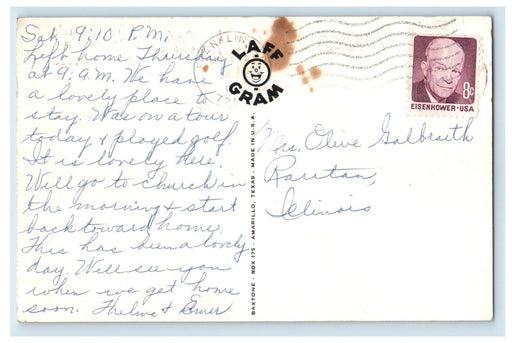 Sat. 9:10 P.M.
Left home Thursday
at 9: A.M. We have
a lovely place to
stay. Was on a tour
today & played golf.
It is lovely here.
Will go to church in
the morning & start
back toward home.
This has been a lovely
day. Will see you
when we get home
soon. Thelma & Elmer
LAFF
GRAM
BAXTONE - BOX 175 - AMARILLO, TEXAS - MADE IN U.S.A.
8c
EISENHOWER·USA
Mrs. Olive Galbraith
Raritan,
Illinois